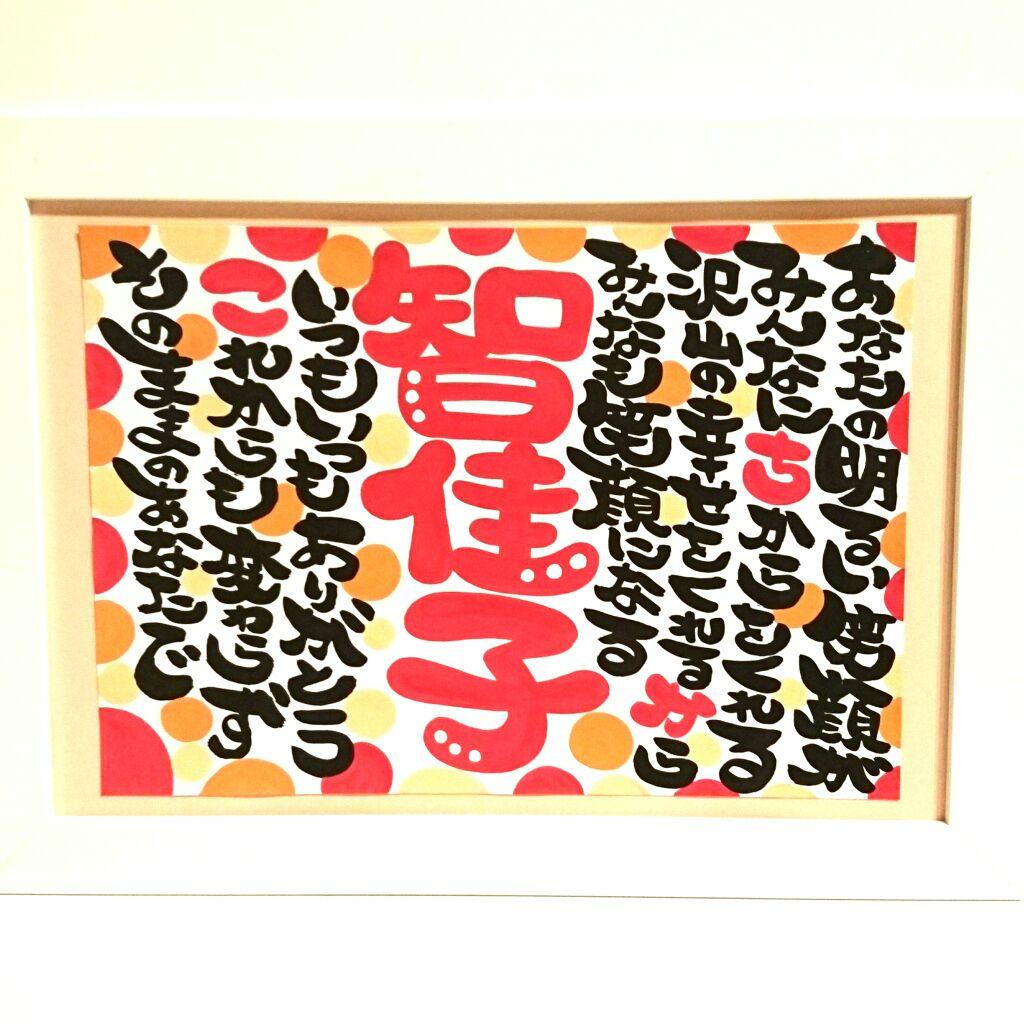 あなたの明るい笑顔が
みんなにちからをくれる
沢山の幸せをくれるから
みんなも笑顔になる
智佳子
いつもいつもありがとう
これからも変わらず
そのままのあなたで